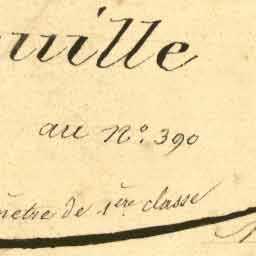 uille
au N.º 390
mètre de 1ère classe